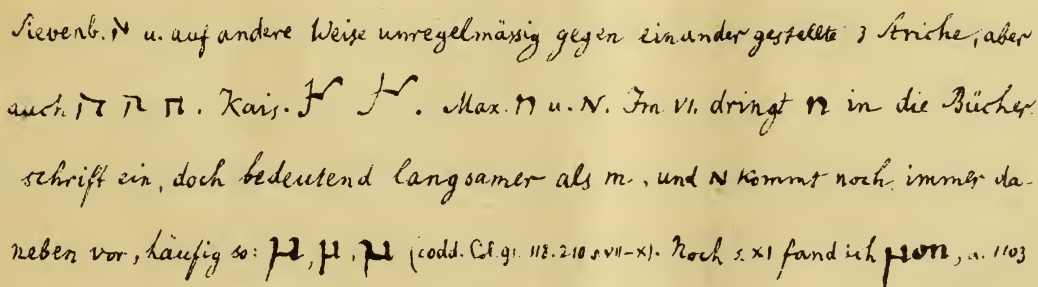 Sievenb. N u. auf andere Weise unregelmässig gegen einander gestellte 3 Striche, aber
auch П П П. Kais. Max. n u. N. Im VI. dringt n in die Bücher
schrift ein, doch bedeutend langsamer als m, und N kommt noch immer da-
neben vor, häufig so: µ, µ, µ (codd. 118. 210 s. VII-X). Noch s. XI fand ich µon, a. 1103